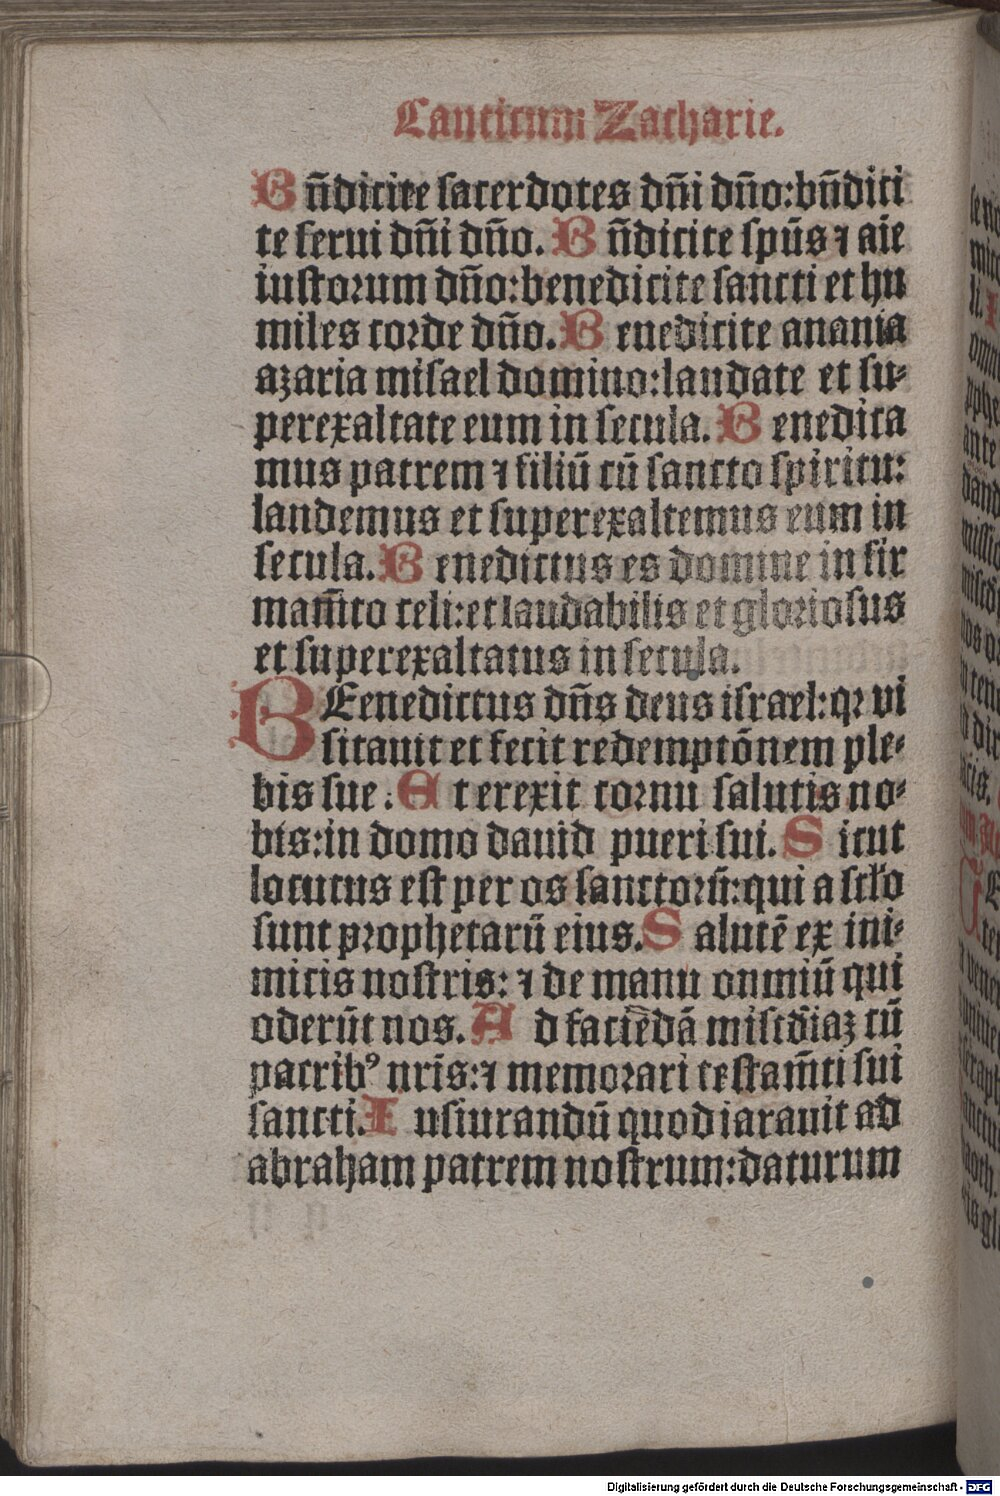 Canticum Zacharie.
Bn̄dicite sacerdotes dn̄i dn̄o:bn̄dici
te serui dn̄i dn̄o. Bn̄dicite sp̄us ⁊ aīe
iustorum dn̄o:benedicite sancti et hu
miles corde dn̄o. Benedicite anania
azaria misael domino:laudate et su-
perexaltate eum in secula. Benedica
mus patrem ⁊ filiū cū sancto spiritu:
laudemus et superexaltemus eum in
secula. Benedictus es domine in fir
mam̄ito celi:et laudabilis et gloriosus
et superexaltatus in secula.
BEenedictus dn̄s deus israel:qꝛ vi
sitauit et fecit redemptōnem ple-
bis sue. Et erexit cornu salutis no-
bis:in domo dauid pueri sui. Sicut
locutus est per os sanctorū:qui a scl̄o
sunt prophetarū eius. Salutē ex ini-
micis nostris: ⁊ de manu omniū qui
oderūt nos. Ad faciēdā misc̄diaꝫ cū
patribꝰ nr̄is:⁊ memorari testam̄ti sui
sancti. Iusiurandū quod iarauit ad
abraham patrem nostrum:daturum
Digitalisierung gefördert durch die Deutsche Forschungsgemeinschaft - DFG